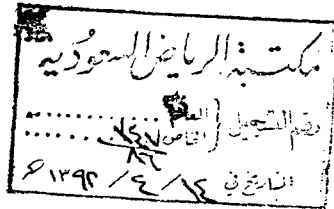 مكتبة الرياض السعودية
رقم التسجيل { العام
الخاص ١٤٧
٨٦
التاريخ في ١٤ / ٤ / ١٣٩٢ هـ